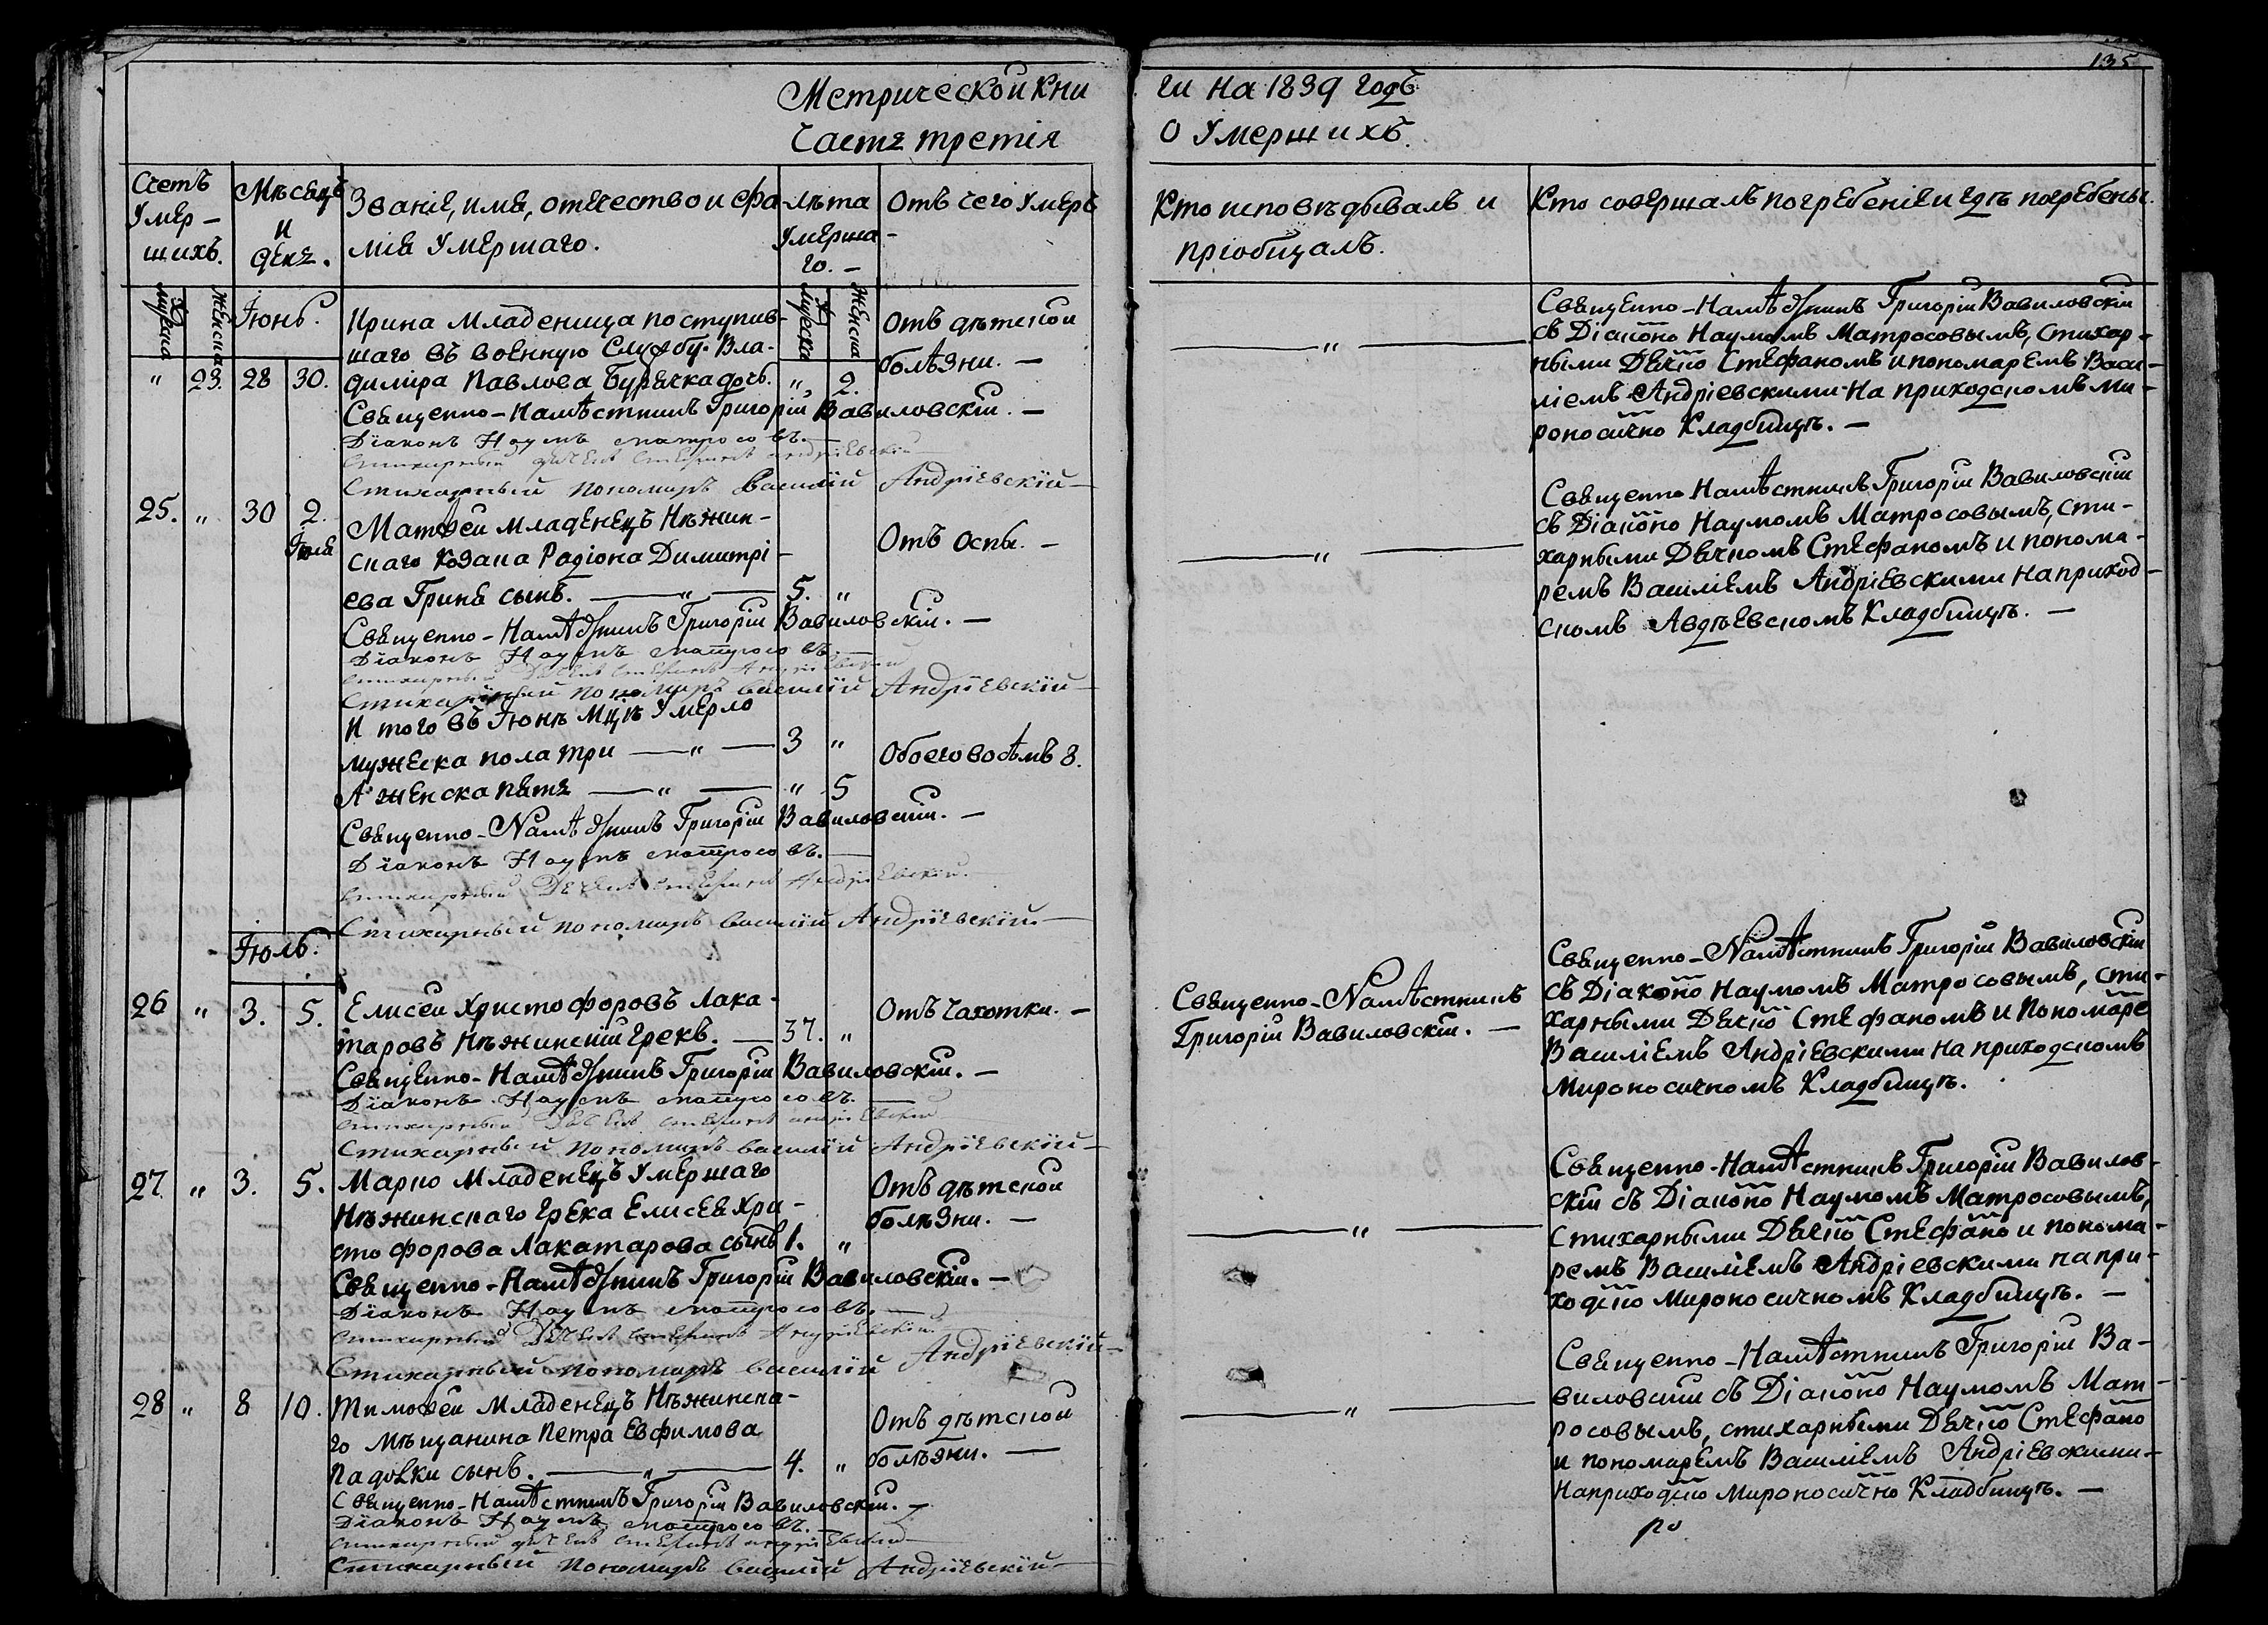 135
Метрической Кни
ги на 1839 годъ
Часть третія
О Умершихъ.
Счетъ Умер-шихъ.
Мѣсецъ и день.
Званіе, имя, отчество и фа-
мія Умершаго.
лѣта Умерша-го.
Отъ чего Умеръ
Кто исповѣдывалъ и
пріобщалъ.
Кто совершалъ погребеніе и гдѣ погребены.
мужеска
женска
Іюнь.
мужеска
женска
" 23. 28 30.
Ирина Младеница поступив-
шаго въ военную Службу Вла-
димира Павлова Бурячка дочь. " 2.
Отъ дѣтской
болѣзни. —
Священно-Намѣстникъ Григорій Вавиловскій. —
Діаконъ Наумъ Матросовъ. —
Стихарный дячекъ Стефанъ Андріевскій
Стихарный пономарь Василій Андріевскій
— " —
Священно-Намѣстникъ Григорій Вавиловскій
съ Діакономъ Наумомъ Матросовымъ, Стихар-
ными Дячкомъ Стефаномъ и пономаремъ Васи-
ліемъ Андріевскими На приходскомъ Ми-
роносично Кладбищѣ. —
25. " 30 2. Іюля
Матѳей младенецъ Нѣжин-
скаго Козака Радіона Димитрі-
ева Гриня сынъ. — " — 5. "
Отъ Оспы. —
Священно-Намѣстникъ Григорій Вавиловскій. —
Діаконъ Наумъ Матросовъ —
Стихарный Дячекъ Стефанъ Андріевскій
Стихарный пономарь Василій Андріевскій
— " —
Священно Намѣстникъ Григорій Вавиловскій
съ Діакономъ Наумомъ Матросовымъ, сти-
харными Дячкомъ Стефаномъ и понома-
ремъ Василіемъ Андріевскими На приход-
скомъ Авдѣевскомъ Кладбищѣ. —
И того въ Іюнѣ Мцѣ Умерло
мужеска пола три — " — 3 "
А женска пять — " — " 5
Обоего восѣмъ 8.
Священно-Намѣстникъ Григорій Вавиловскій. —
Діаконъ Наумъ Матросовъ. —
Стихарный Дячекъ Стефанъ Андріевскій.
Стихарный пономарь Василій Андріевскій. —
Іюль.
26 " 3. 5.
Елисей Христофоровъ Лака-
таровъ Нѣжинскій Грекъ. — 37. "
Отъ чахотки. —
Священно-Намѣстникъ Григорій Вавиловскій. —
Діаконъ Наумъ Матросовъ. —
Стихарный Дячекъ Стефанъ Андріевскій
Стихарный пономарь Василій Андріевскій
Священно-Намѣстникъ
Григорій Вавиловскій. —
Священно-Намѣстникъ Григорій Вавиловскій
съ Діаконо Наумомъ Матросовымъ, сти-
харными Дячко Стефаномъ и Пономаре
Василіемъ Андріевскими На приходскомъ
Мироносичномъ Кладбищѣ.
27 " 3. 5.
Марко Младенецъ Умершаго
Нѣжинскаго Грека Елисея Хри-
стофорова Лакатарова сынъ 1. "
Отъ дѣтской
болѣзни. —
Священно-Намѣстникъ Григорій Вавиловскій. —
Діаконъ Наумъ Матросовъ. —
Стихарный Дячекъ Стефанъ Андріевскій.
Стихарный пономарь Василій Андріевскій
— " —
Священно-Намѣстникъ Григорій Вавилов-
скій съ Діаконо Наумомъ Матросовымъ,
Стихарными Дячко Стефано и понома-
ремъ Василіемъ Андріевскими на при-
ходско Мироносичномъ Кладбищѣ. —
28 " 8 10.
Тимоѳей Младенецъ Нѣжинска-
го Мѣщанина Петра Евфимова
Падовки сынъ. — " — 4. "
Отъ дѣтской
болѣзни. —
Священно-Намѣстникъ Григорій Вавиловскій. —
Діаконъ Наумъ Матросовъ. —
Стихарный дячекъ Стефанъ Андріевскій
Стихарный пономарь Василій Андріевскій
— " —
Священно-Намѣстникъ Григорій Ва-
виловскій съ Діаконо Наумомъ Мат-
росовымъ, стихарными Дячко Стефано
и пономаремъ Василіемъ Андріевскими-
На приходско Мироносично Кладбищѣ. —
ро